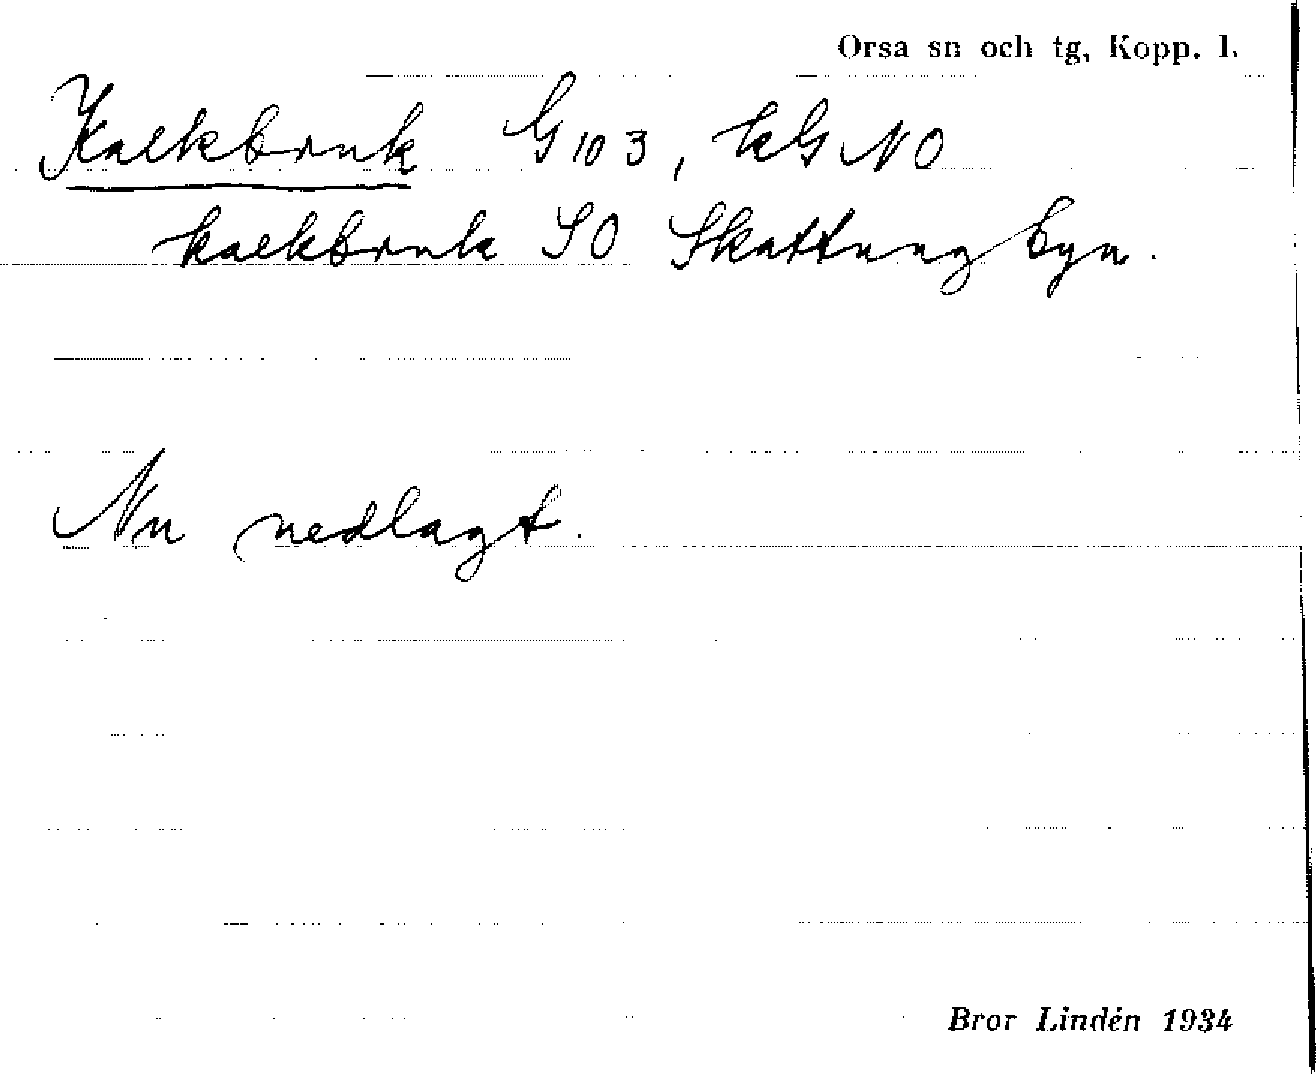 Orsa sn och tg, Kopp. l.
Kalkbruk G 103, kG NO
kalkbruk SO Skattungbyn.
Nu nedlagt.
Bror Lindén 1934